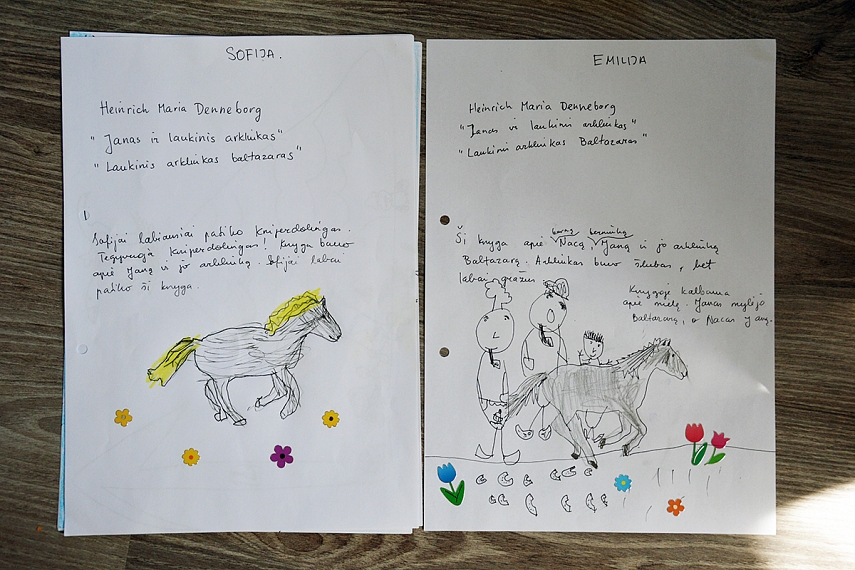 SOFIJA.
Heinrich Maria Denneborg
"Janas ir laukinis arkliukas"
"Laukinis arkliukas baltazaras"
Sofijai labiausiai patiko Kniperdolingas.
Tegyvuoja Kniperdolingas! Knyga buvo
apie Janą ir jo arkliuką. Sofijai labai
patiko ši knyga.
EMILIJA
Heinrich Maria Denneborg
"Janas ir laukinis arkliukas"
"Laukinis arkliukas Baltazaras"
Ši knyga apie Nacą, Janą ir jo arkliuką
Baltazarą. Arkliukas buvo šlubas, bet
labai gražus
Knygoje kalbama
apie meilę. Janas mylėjo
Baltazarą, o Nacas Janą.